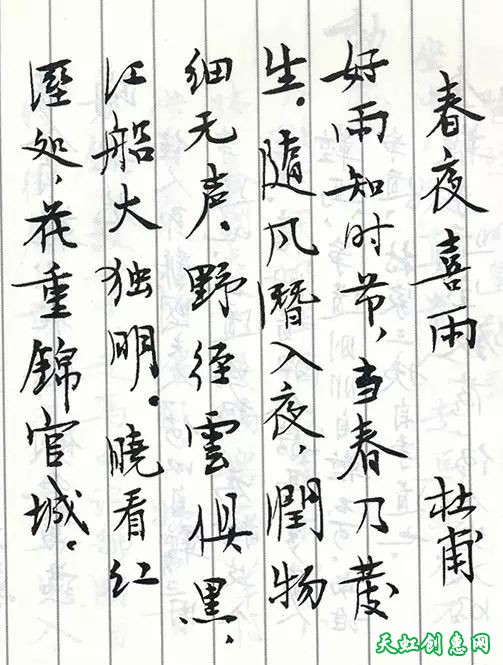 春夜喜雨 杜甫
好雨知时节，当春乃发
生。随风潛入夜，潤物
细无声。野径雲俱黑，
江船火独明。曉看红
溼处，花重錦官城。
天虹创意网